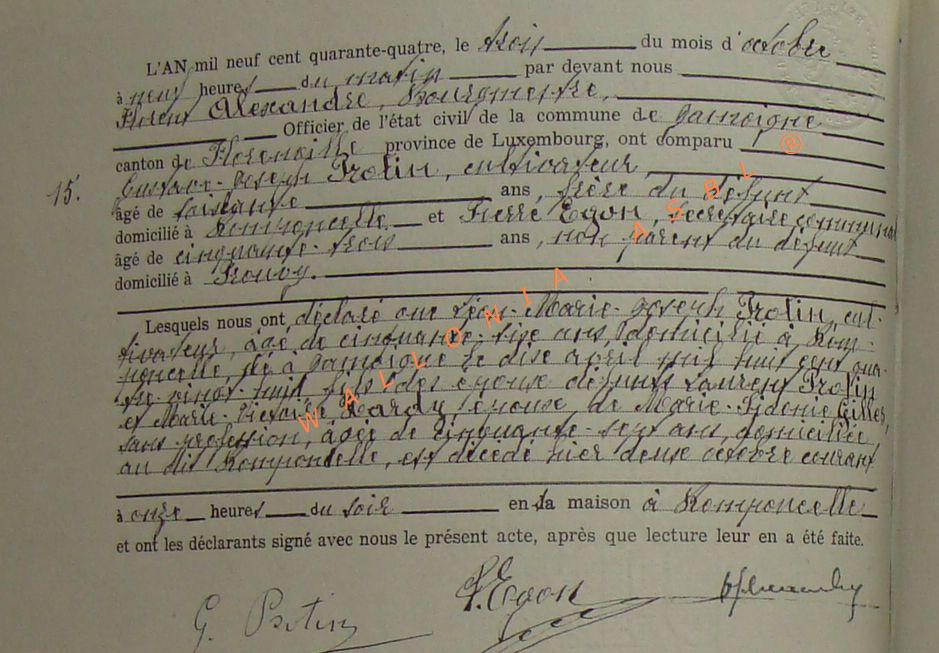 L'AN mil neuf cent quarante-quatre, le trois du mois d'octobre
à neuf heures du matin par devant nous
Florent Alexandre, Bourgmestre,
Officier de l'état civil de la commune de Jamoigne
canton de Florenville province de Luxembourg, ont comparu
15. Gustave-Joseph Protin, cultivateur,
âgé de soixante ans, frère du défunt
domicilié à Romponcelle et Pierre Egon, secrétaire communal
âgé de cinquante-trois ans, non parent du défunt
domicilié à Prouvy.
Lesquels nous ont déclaré que Léon-Marie-Joseph Protin, cul-
tivateur, âgé de cinquante-six ans, domicilié à Rom-
poncelle, né à Jamoigne le dix avril mil huit cent qua-
tre vingt huit, fils des époux défunts Laurent Protin
et Marie-Victoire Hardy, époux de Marie-Sidonie Gilles,
sans profession, âgée de cinquante-sept ans, domiciliée
au dit Romponcelle, est décédé hier deux octobre courant
à onze heures du soir en sa maison à Romponcelle
et ont les déclarants signé avec nous le présent acte, après que lecture leur en a été faite.
G. Protin P. Egon
WALLONIA ASBL ®